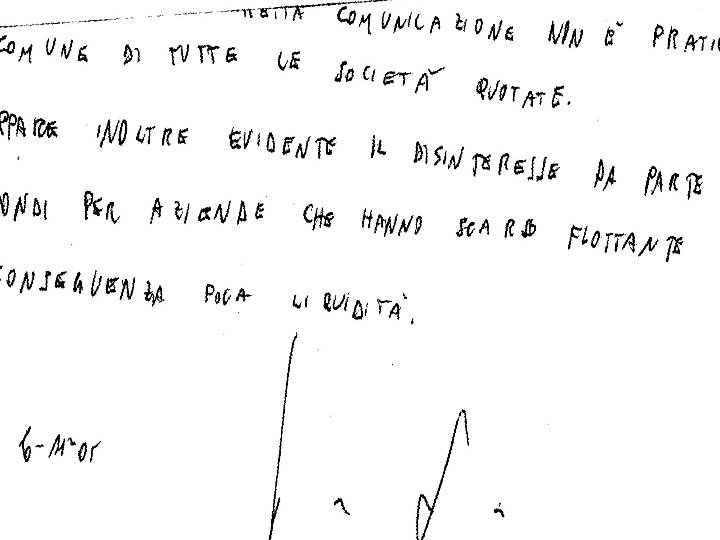 COMUNICAZIONE NON È PRATI
COMUNE DI TUTTE LE SOCIETÀ QUOTATE.
PPARE INOLTRE EVIDENTE IL DISINTERESSE DA PARTE
ONDI PER AZIENDE CHE HANNO SCARSO FLOTTANTE
CONSEGUENZA POCA LIQUIDITÀ.